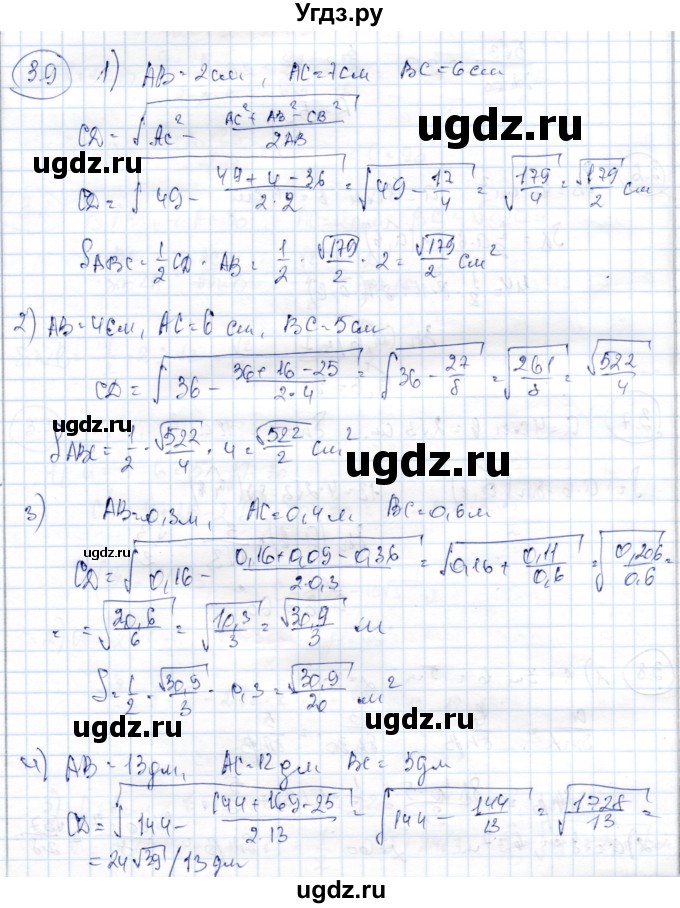 Угдз.ру
3.9 1) AB = 2 см, AC = 7 см BC = 6 см
CD = √(AC² − (AC² + AB² − CB²)/(2AB))
ugdz.ru ugdz.ru
CD = √(49 − (49 + 4 − 36)/(2·2)) = √(49 − 17/4) = √(179/4) = √179/2 см
ugdz.ru
S ABC = 1/2 CD · AB = 1/2 · √179/2 · 2 = √179/2 см²
ugdz.ru ugdz.ru
2) AB = 4 см, AC = 6 см, BC = 5 см
CD = √(36 − (36 + 16 − 25)/(2·4)) = √(36 − 27/8) = √(261/8) = √522/4
ugdz.ru
S ABC = 1/2 · √522/4 · 4 = √522/2 см²
ugdz.ru ugdz.ru
3) AB = 0,3 м, AC = 0,4 м, BC = 0,6 м
ugdz.ru
CD = √(0,16 − (0,16 + 0,09 − 0,36)/(2·0,3)) = √(0,16 + 0,11/0,6) = √(0,206/0,6) =
= √(20,6/6) = √(10,3/3) = √30,9/3 м
ugdz.ru
S = 1/2 · √30,9/3 · 0,3 = √30,9/20 м²
ugdz.ru ugdz.ru
4) AB = 13 дм, AC = 12 дм BC = 5 дм
CD = √(144 − (144 + 169 − 25)/(2·13)) = √(144 − 144/13) = √(1728/13) =
ugdz.ru
= 24√39/13 дм
ugdz.ru